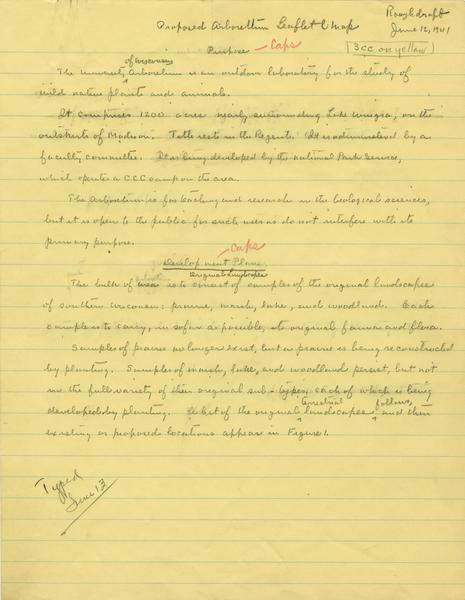 Rough draft
June 12, 1941
Proposed Arboretum Leaflet & Map
3cc on yellow
Purpose - Caps
of Wisconsin
The University Arboretum is an outdoor laboratory for the study of
wild native plants and animals.
It comprises 1200 acres nearly surrounding Lake Wingra, on the
outskirts of Madison. Title rests in the Regents. It is administered by a
faculty committee. It is being developed by the National Park Service,
which operates a CCC camp on the area.
The Arboretum is for teaching and research in the biological sciences,
but it is open to the public for such uses as do not interfere with its
primary purpose.
Caps
Development Plans
Original Landscapes
The bulk of the is to consist of samples of the original landscapes
of southern Wisconsin: prairie, marsh, lake, and woodland. Each
sample is to carry, in so far as possible, its original fauna and flora.
Samples of prairie no longer exist, but a prairie is being reconstructed
by planting. Samples of marsh, lake, and woodland persist, but not
in the full variety of their original sub-types, each of which is being
terrestrial follows,
developed by planting. A list of the original landscapes and their
existing or proposed locations appear in Figure 1.
Typed
June 13